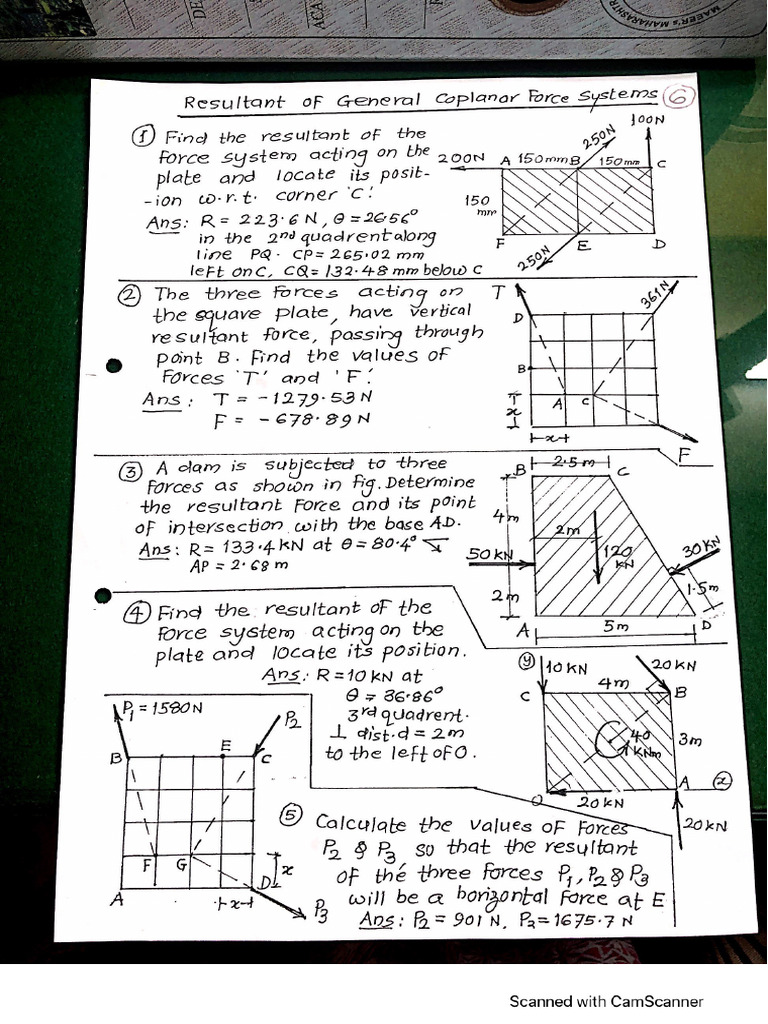 Resultant of General Coplanar Force Systems 6
1 Find the resultant of the
force system acting on the
plate and locate its posit-
-ion w.r.t. corner 'C'.
Ans: R = 223.6 N, θ = 26.56°
in the 2nd quadrent along
line PQ. CP = 265.02 mm
left on C, CQ = 132.48 mm below C
200N A 150mm B 150mm C
250N
100N
150
mm
F E D
250N
2 The three forces acting on
the square plate, have vertical
resultant force, passing through
point B. Find the values of
forces 'T' and 'F'.
Ans: T = -1279.53 N
F = -678.89 N
T
361N
D
B
A C
x
x
F
3 A dam is subjected to three
forces as shown in fig. Determine
the resultant force and its point
of intersection with the base AD.
Ans: R = 133.4 kN at θ = 80.4°
AP = 2.68 m
B 2.5m C
4m
2m
50 kN
120
kN
30 kN
2m
1.5m
A 5m D
4 Find the resultant of the
force system acting on the
plate and locate its position.
Ans: R = 10 kN at
θ = 36.86°
3rd quadrent.
⊥ dist. d = 2m
to the left of O.
y
10 kN
20 kN
C 4m B
40
kNm
3m
O A x
20 kN
20 kN
P1 = 1580N
P2
B E C
F G x
D
A x
P3
5 Calculate the values of forces
P2 & P3, so that the resultant
of the three forces P1, P2 & P3
will be a horizontal force at E
Ans: P2 = 901 N, P3 = 1675.7 N
Scanned with CamScanner